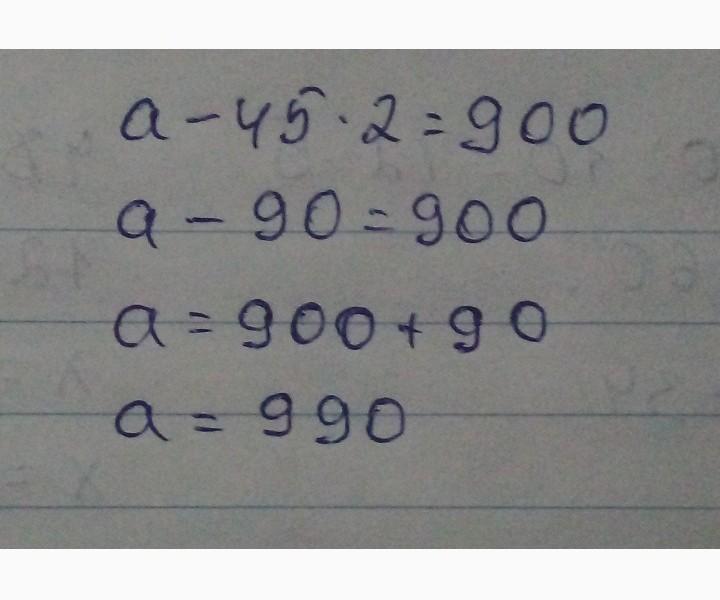 a - 45 · 2 = 900
a - 90 = 900
a = 900 + 90
a = 990